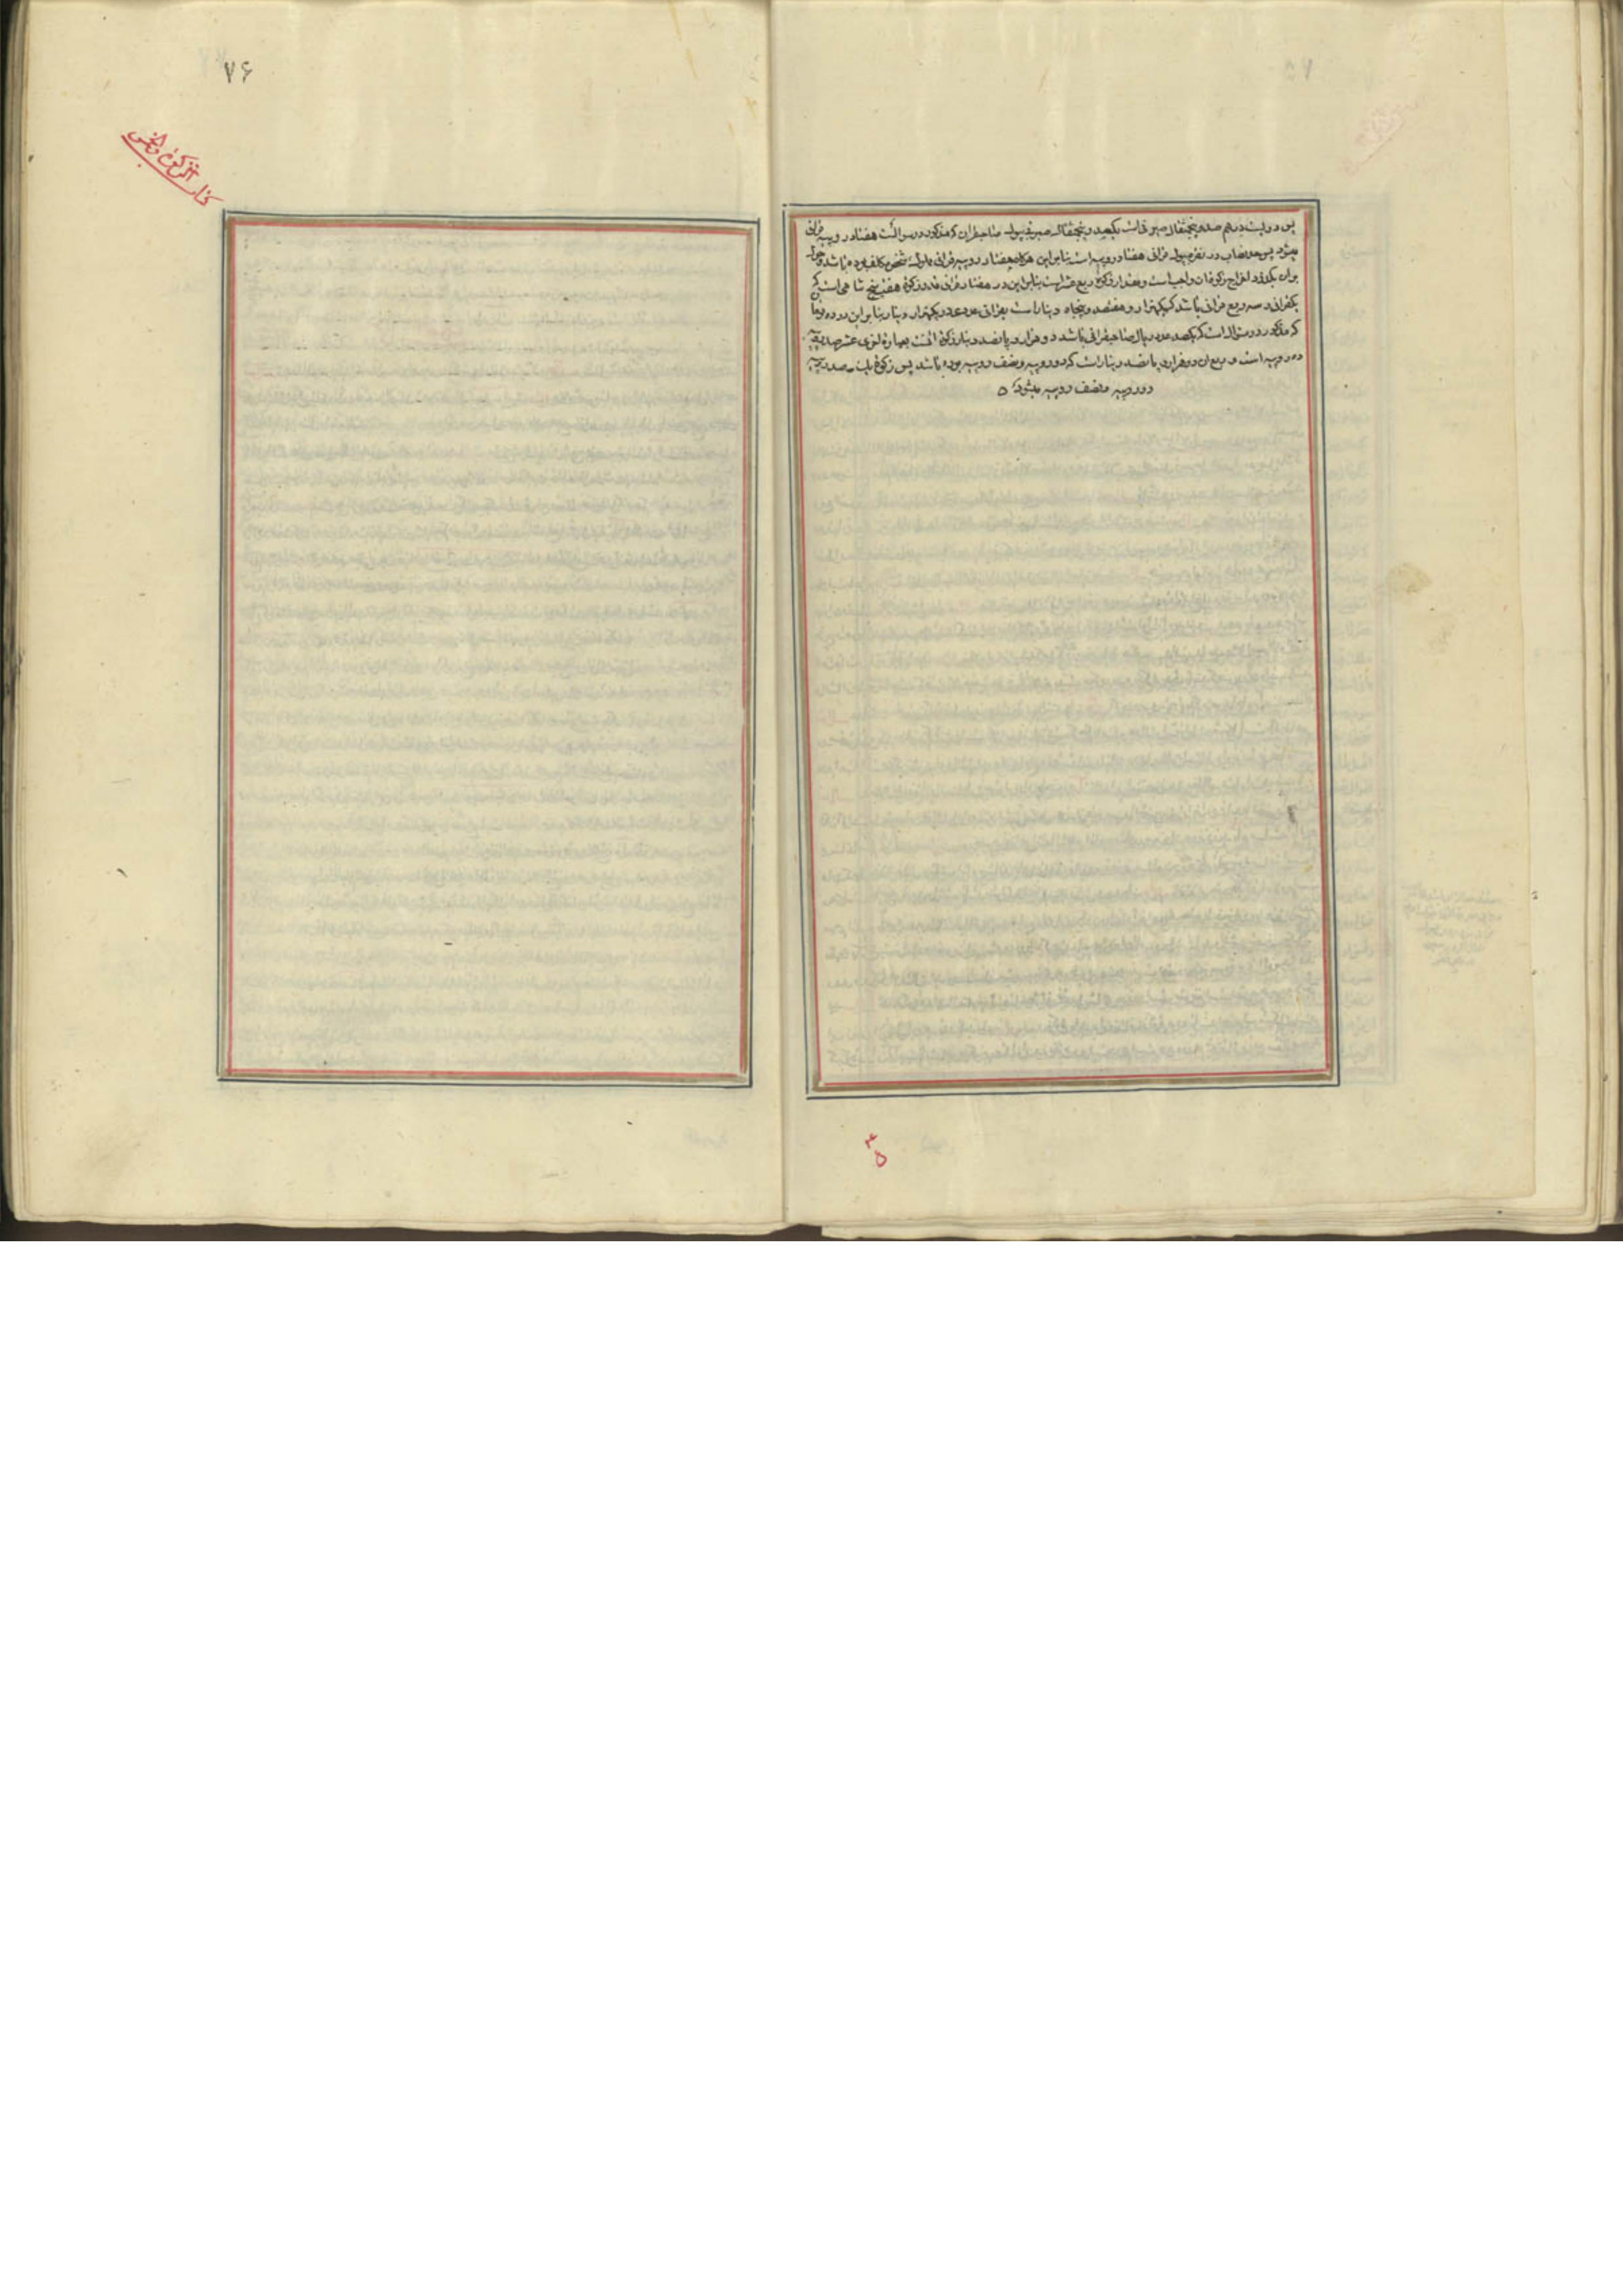 پس دویست درهم صد و پنجمثقال صیرفی است یکصد و پنجمثقال صیرفی پول صاحبقران که مذکور در سوالست هفتاد روپیه قرانی
میشود پس نصاب در نقره پول قرانی هفتاد روپیه است بنابراین هرکاه هفتاد روپیه قرانی مال شخص مکلف بوده باشد و حول
بران بکذرد اخراج زکوة ان واجب است و مقدار زکوة ربع عشر است بنابراین در هفتاد قرانی قدر زکوة هفت پنج شاهی است که
یکقرانی و سه ربع قرانی باشد که یکهزار و هفتصد و پنجاه دینار است بقرانی عددی یکهزار دینار بنابراین در ده تومان
که مذکور در سوال است که یکصد عدد ریال صاحبقرانی باشد دو هزار و پانصد دینار زکوة انست بعبارة اخری عشر صد روپیه
ده روپیه است و ربع ان دو هزار و پانصد دینار است که دو روپیه و نصف روپیه بوده باشد پس زکوة یکصد روپیه
دو روپیه و نصف روپیه میشود ۵
۳۵
۷۶
کتاب الزکوة والخمس